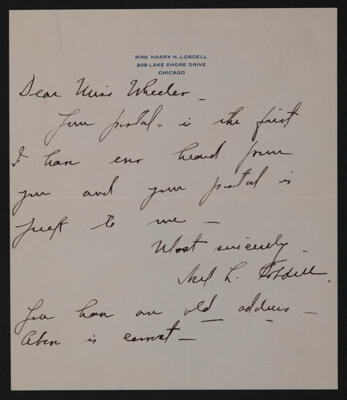 MRS. HARRY H. LOBDELL
209 LAKE SHORE DRIVE
CHICAGO
Dear Miss Wheeler –
Your postal – is the first
I have ever heard from
you and your postal is
Greek to me –
Most sincerely –
L. Lobdell.
You have an old address –
Above is correct –